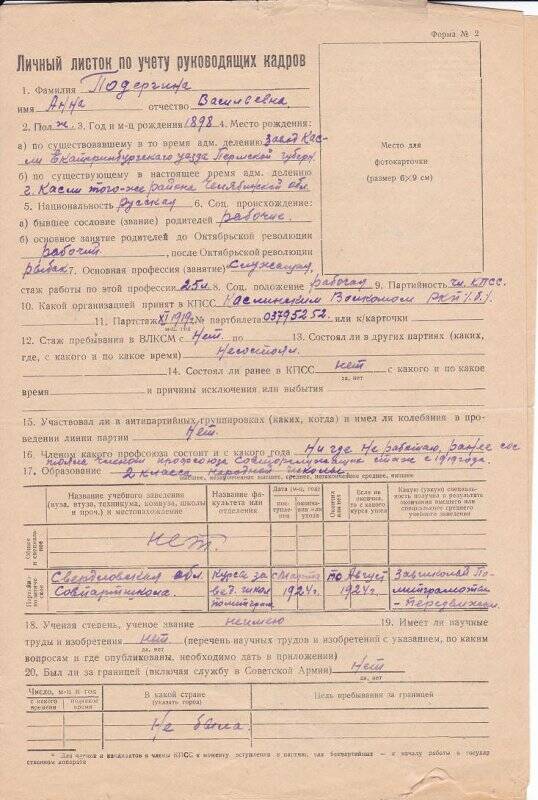 Форма № 2
Личный листок по учету руководящих кадров
1. Фамилия Подергина
имя Анна отчество Васильевна
2. Пол ж 3. Год и м-ц рождения 1898 4. Место рождения:
а) по существовавшему в то время адм. делению завод Кас-
ли Екатеринбургского уезда Пермской губерн
б) по существующему в настоящее время адм. делению
г. Касли того-же района Челябинской обл
5. Национальность русская 6. Соц. происхождение:
а) бывшее сословие (звание) родителей рабочие.
б) основное занятие родителей до Октябрьской революции
рабочий, после Октябрьской революции
рыбак 7. Основная профессия (занятие) служащая,
стаж работы по этой профессии 25 л 8. Соц. положение рабочая 9. Партийность чл. КПСС.
10. Какой организацией принят в КПСС Каслинским Волкомом РКП(б).
11. Партстаж XI 1919 г. № партбилета 03795252. или к/карточки
м-ц, год
12. Стаж пребывания в ВЛКСМ с Нет. по 13. Состоял ли в других партиях (каких,
где, с какого и по какое время) Несостоял.
14. Состоял ли ранее в КПСС нет с какого и по какое
да, нет
время и причины исключения или выбытия
15. Участвовал ли в антипартийных группировках (каких, когда) и имел ли колебания в про-
ведении линии партии Нет.
16. Членом какого профсоюза состоит и с какого года Ни где не работаю, ранее сос
тояла членом профсоюза Совторгслужащих стаж с 1919 года.
17. Образование 2 класса народной школы
высшее, незаконченное высшее, среднее, незаконченное среднее, низшее
Место для
фотокарточки
(размер 6×9 см)
Название учебного заведения (вуза, втуза, техникума, комвуза, школы и проч.) и местонахождение
Название факультета или отделения
Дата (м-ц, год)
поступления
окончания или ухода
Окончил или нет
Если не окончил, то с какого курса ушел
Какую (узкую) специальность получил в результате окончания высшего или специального среднего учебного заведения
Общее и специальное
нет.
Партийно-политическое
Свердловская обл. Совпартшкола.
Курсы за вед. школ политграм.
с Марта 1924 г.
по Август 1924 г.
Завшколой Политграмоты - передвижки.
18. Ученая степень, ученое звание неимею 19. Имеет ли научные
труды и изобретения нет (перечень научных трудов и изобретений с указанием, по каким
да, нет
вопросам и где опубликованы, необходимо дать в приложении)
20. Был ли за границей (включая службу в Советской Армии) Нет
да, нет
Число, м-ц и год
с какого времени
по какое время
В какой стране
(указать город)
Цель пребывания за границей
Не была.
* Для членов и кандидатов в члены КПСС к моменту вступления в партию, для беспартийных — к началу работы в государственном аппарате